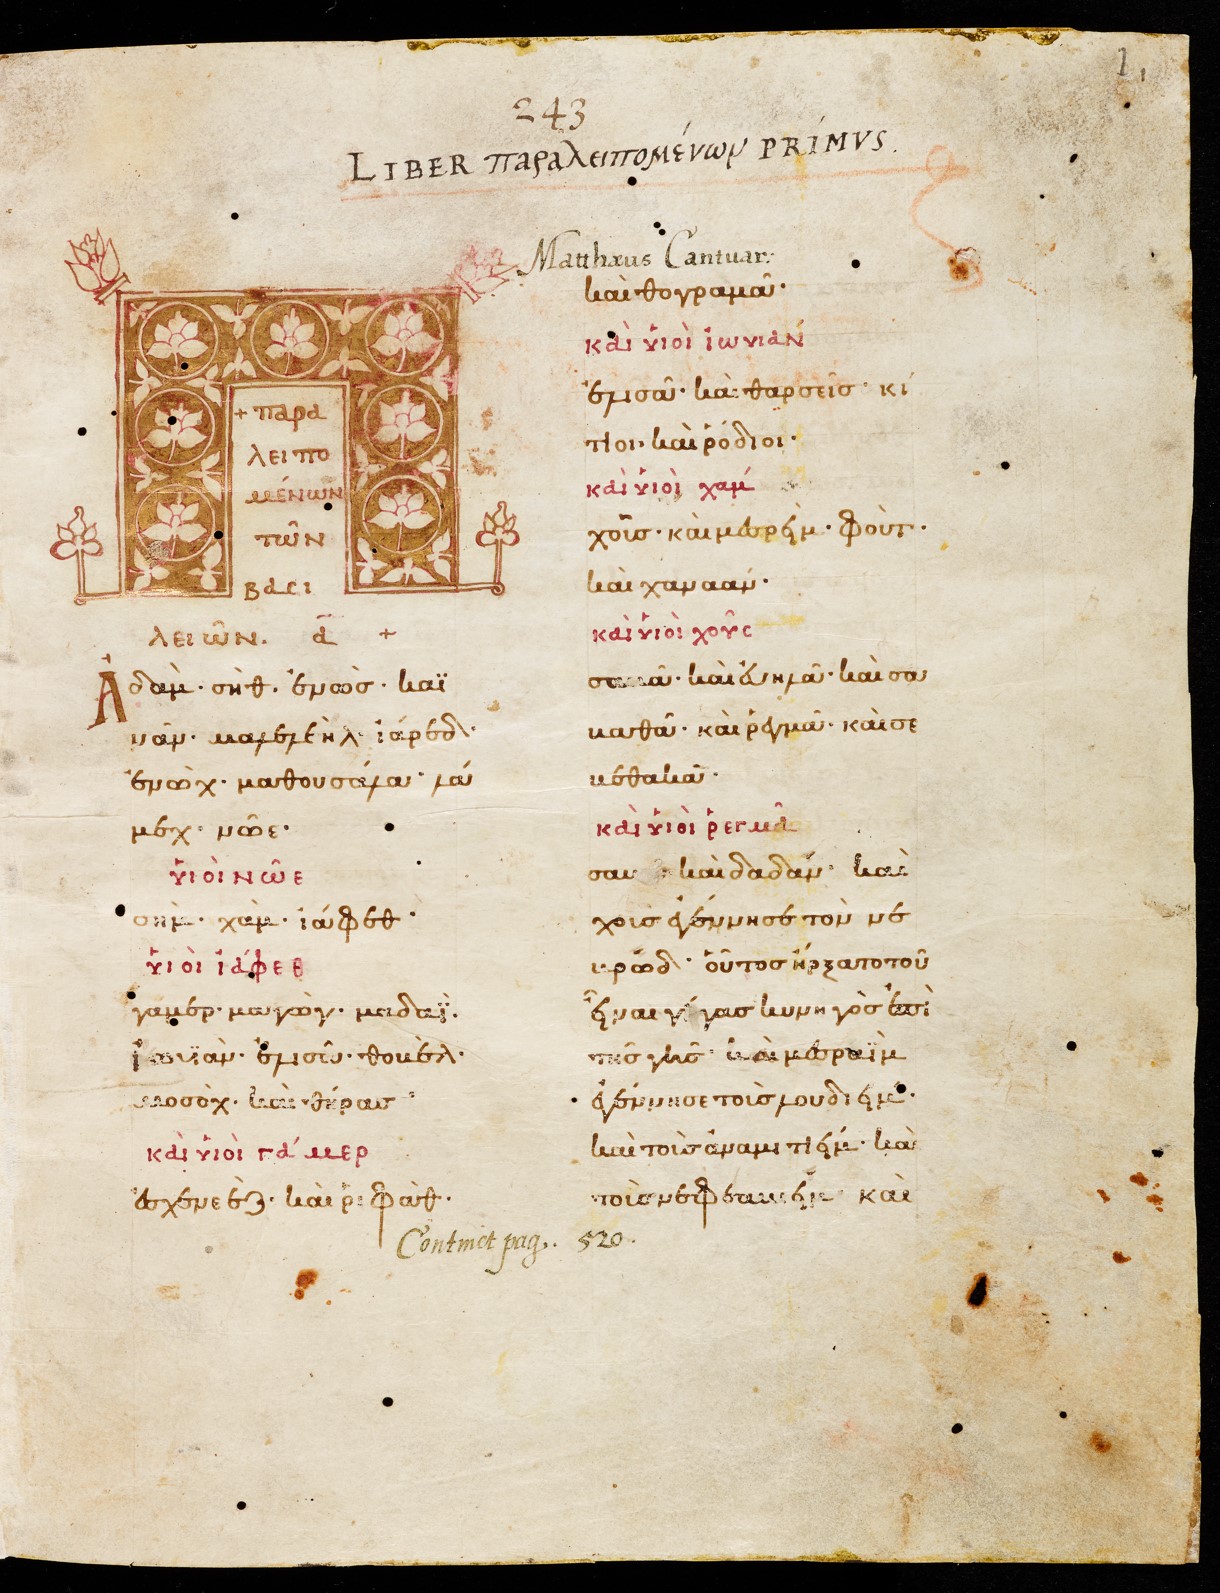 1
243
LIBER παραλειπομένων PRIMVS.
Matthæus Cantuar:
+ παρα
λειπο
μένων
τῶν
βασι
λειῶν. ᾱ +
Ἀδαμ· σὴθ· ἐνὼσ· καϊ
νᾶν· μαλελεὴλ· ἰάρεδ·
ἐνὼχ· μαθουσάλα· λά
μεχ· νῶε·
ὑιοὶ νῶε
σὴμ· χὰμ· ἰάφεθ·
ὑιοὶ ἰάφεθ
γαμὲρ· μαγὼγ· μαδαϊ·
ἰωυϊὰν· ἐλισᾶν· θοκὲλ·
μοσὸχ· καὶ θήρασ·
καὶ ὑιοὶ γάμερ
ἀσχενεὲζ· καὶ ριφὰθ·
καὶ θογραμᾶ·
καὶ ὑιοὶ ἰωυιάν
ἐλισᾶ· καὶ θαρσεῖσ· κί
τιοι· καὶ ρόδιοι·
καὶ ὑιοὶ χαμ
χοῦσ· καὶ μεσραΐμ· φοὺτ·
καὶ χαναάν·
καὶ ὑιοὶ χοῦς
καὶ ἐυηλᾶ· καὶ σα
καθᾶ· καὶ ρεγμᾶ· καὶ σε
κεθακᾶ·
καὶ ὑιοὶ ῥεγμᾶ
καὶ δαδάν· καὶ
χοὺσ ἐγέννησε τὸν νε
βρώδ· οὗτοσ ἤρξατο τοῦ
εἶναι γίγασ κυνηγὸσ ἐπὶ
τῆσ γῆσ· καὶ μεσραῒμ
ἐγέννησε τοὺσ λουδιείμ·
καὶ τοὺσ ἀναμιτιείμ· καὶ
τοὺσ καὶ
Continet pag. 520.